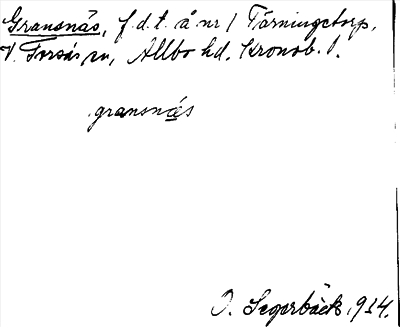 Gransnäs, f.d.t. å nr 1 Tärningetorp,
V. Torsås sn, Allbo hd. Kronob. l.
gransnäs
O. Segerbäck, 1934.